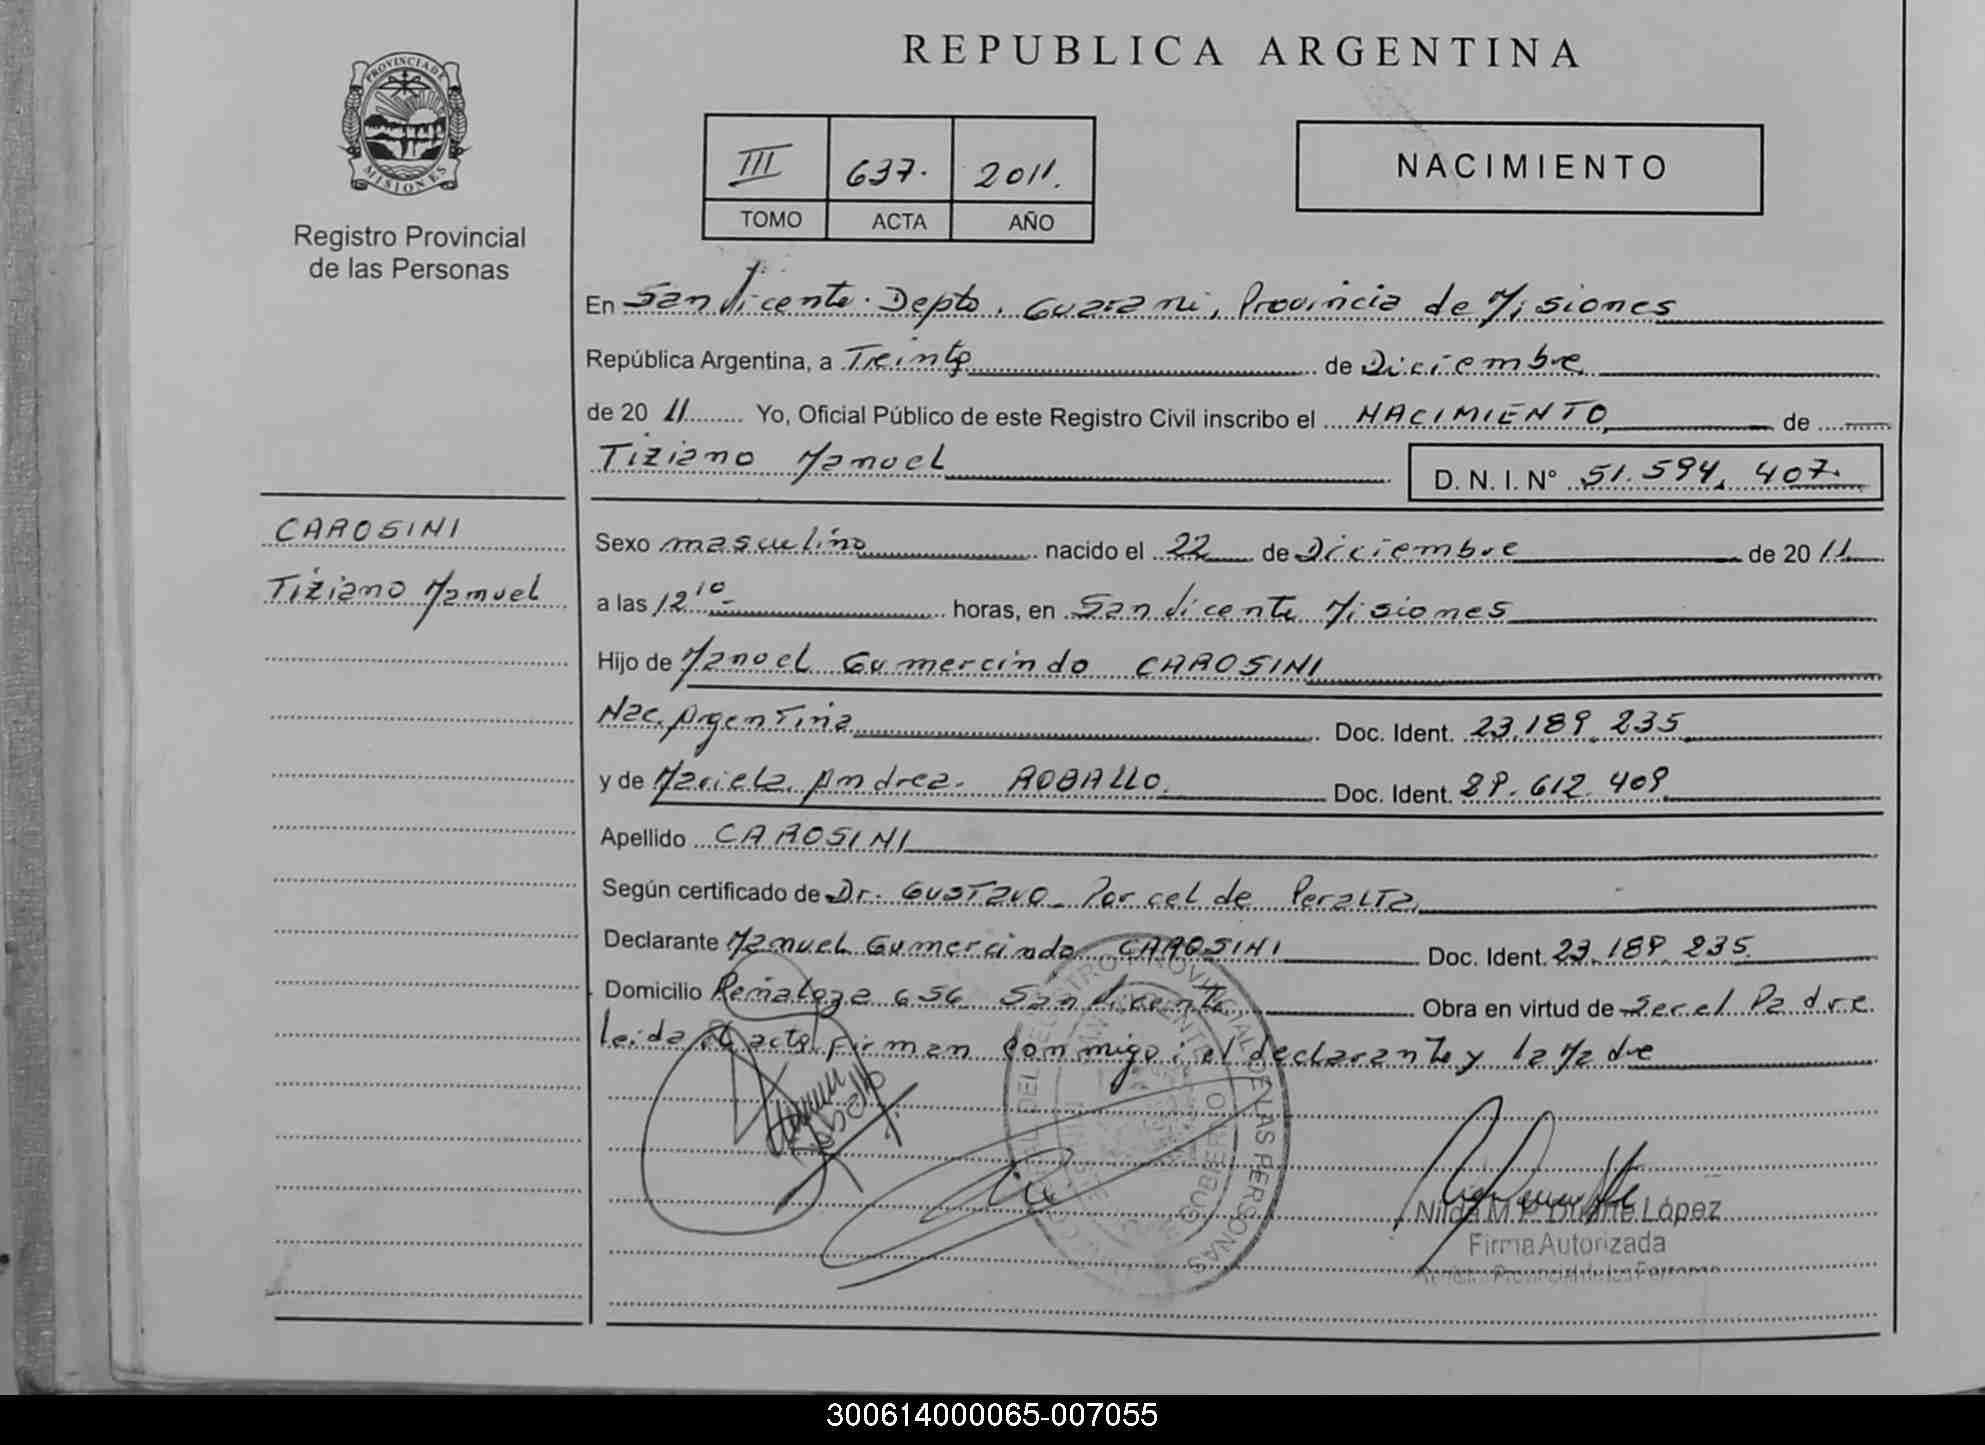 REPUBLICA ARGENTINA
PROVINCIA DE
MISIONES
Registro Provincial
de las Personas
III 637. 2011.
TOMO ACTA AÑO
NACIMIENTO
En San Vicente. Depto. Guarani, Provincia de Misiones
República Argentina, a Treinta de Diciembre
de 20 11 Yo, Oficial Público de este Registro Civil inscribo el NACIMIENTO de
Tiziano Manuel D. N. I. N° 51.594.407.
CAROSINI
Tiziano Manuel
Sexo masculino nacido el 22 de Diciembre de 20 11
a las 12 10 horas, en San Vicente Misiones
Hijo de Manuel Gumercindo CAROSINI
Nac. Argentina Doc. Ident. 23.189.235
y de Mariela Andrea. ROBALLO Doc. Ident. 28.612.409
Apellido CAROSINI
Según certificado de Dr. Gustavo Porcel de Peralta
Declarante Manuel Gumercindo CAROSINI Doc. Ident. 23.189.235
Domicilio Peñaloza 656 San Vicente Obra en virtud de ser el Padre
leida el acta firman conmigo: el declarante y la Madre
Nilda M. P. Duarte López
Firma Autorizada
Registro Provincial de las Personas
300614000065-007055